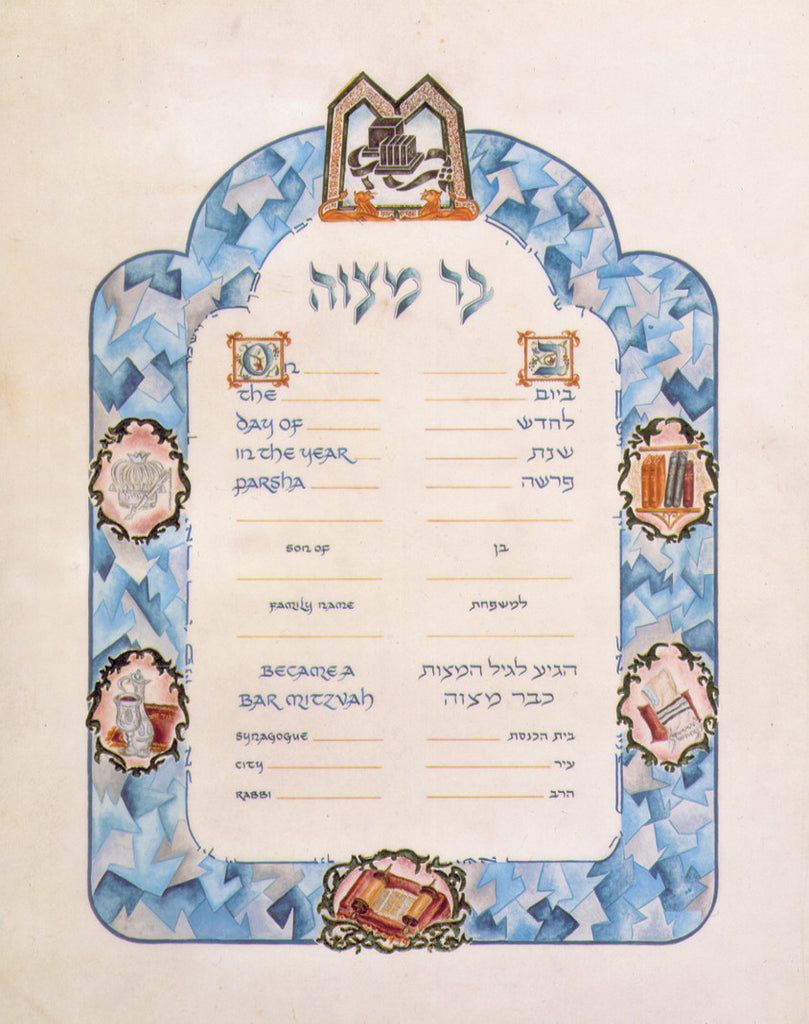 בר מצוה
On
ב
the
ביום
day of
לחדש
in the year
שנת
parsha
פרשה
son of
בן
family name
למשפחת
became a
הגיע לגיל המצות
bar mitzvah
כבר מצוה
synagogue
בית הכנסת
city
עיר
rabbi
הרב